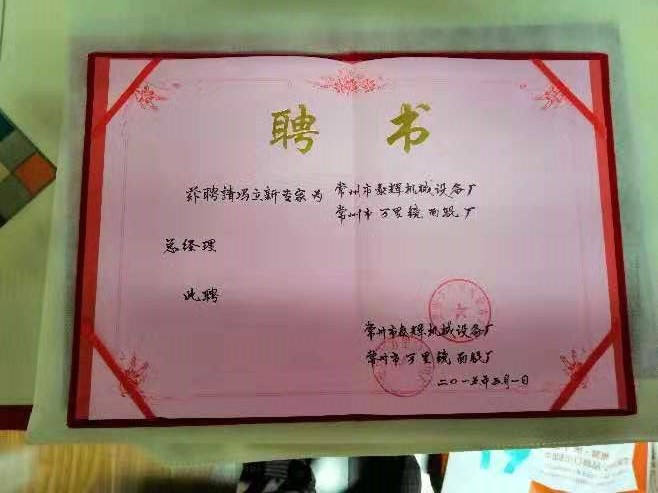 聘 书
兹聘請冯立新专家为 常州市泰辉机械设备厂
常州市万里镜面辊厂
总经理
此聘
常州市泰辉机械设备厂
常州市万里镜面辊厂
二〇一五年五月一日